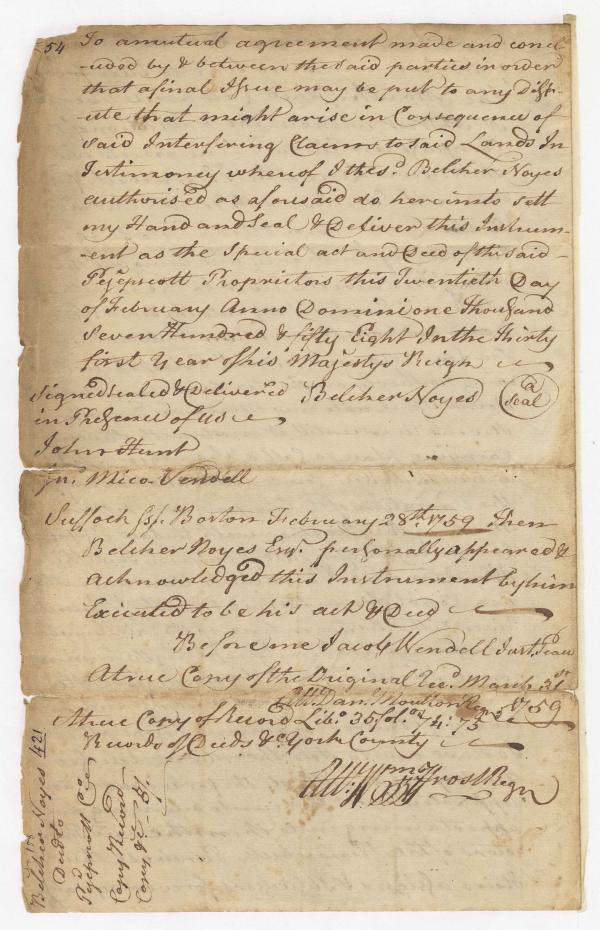 54 To a mutual agreement made and conc-
-uded by & between the said parties in order
that a final Issue may be put to any Disp-
-ute that might arise in Consequence of
said Interfering Claims to said Lands In
Testimoney whereof I the sd. Belcher Noyes
authorised as aforesaid do hereunto sett
my Hand and Seal & Deliver this Instrum-
-ent as the Special act and Deed of the said
Pejepscott Proprietors this Twentieth Day
of February Anno Domini one thousand
Seven Hundred & fifty Eight In the Thirty
first Year of his Majestys Reign
Signed sealed & Delivered Belcher Noyes a Seal
in Presence of us
John Hunt
Jn. Mico Wendell
Suffock ss. Boston February 28th. 1759 Then
Belcher Noyes Esqr. personally appeared &
acknowledged this Instrument by him
Executed to be his act & Deed
Before me Jacob Wendell Just. Peace
A true Copy of the Original Recd. March 31st 1759
Att. Danl. Moulton Regr.
A true Copy of Record Libo. 35 folos. 74: 75
Records of Deeds &c York County
Att. Wm Frost Regr
Belcher Noyes 421
Deed to
Pejepscott Co
Copy Record